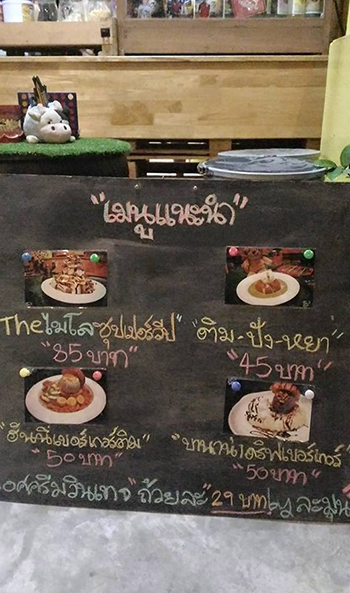 "เมนูแนะนำ"
Theไมโลซุปเปอร์วีป"
"85 บาท"
"ติม-ปัง-หยา"
"45 บาท"
"ฮันนี่เบอร์เกอร์ติม"
"50บาท"
"บานาน่าดริฟเบอร์เกอร์"
"50บาท"
อศครีมวินเทจ"ถ้วยละ"29 บาท by ละมุน